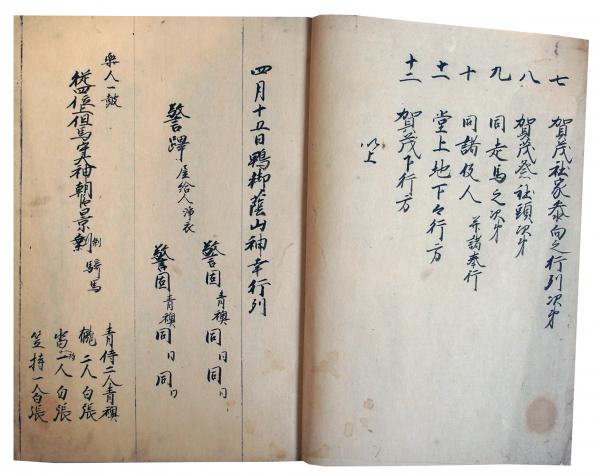 七 賀茂社家参向之行列次第
八 賀茂祭社頭次第
九 同走馬之次第
十 同諸役人 并諸奉行
十一 堂上地下々行方
十二 賀茂下行方
以上
四月十五日鴨御蔭山神幸行列
警固 青襖 同 同 同 同
警蹕 座給人 浄衣
警固 青襖 同 同 同 同
楽人一鼓
従四位 但馬守 朝臣 騎馬
青侍二人青襖
二人白張
二人白張
笠持一人白張